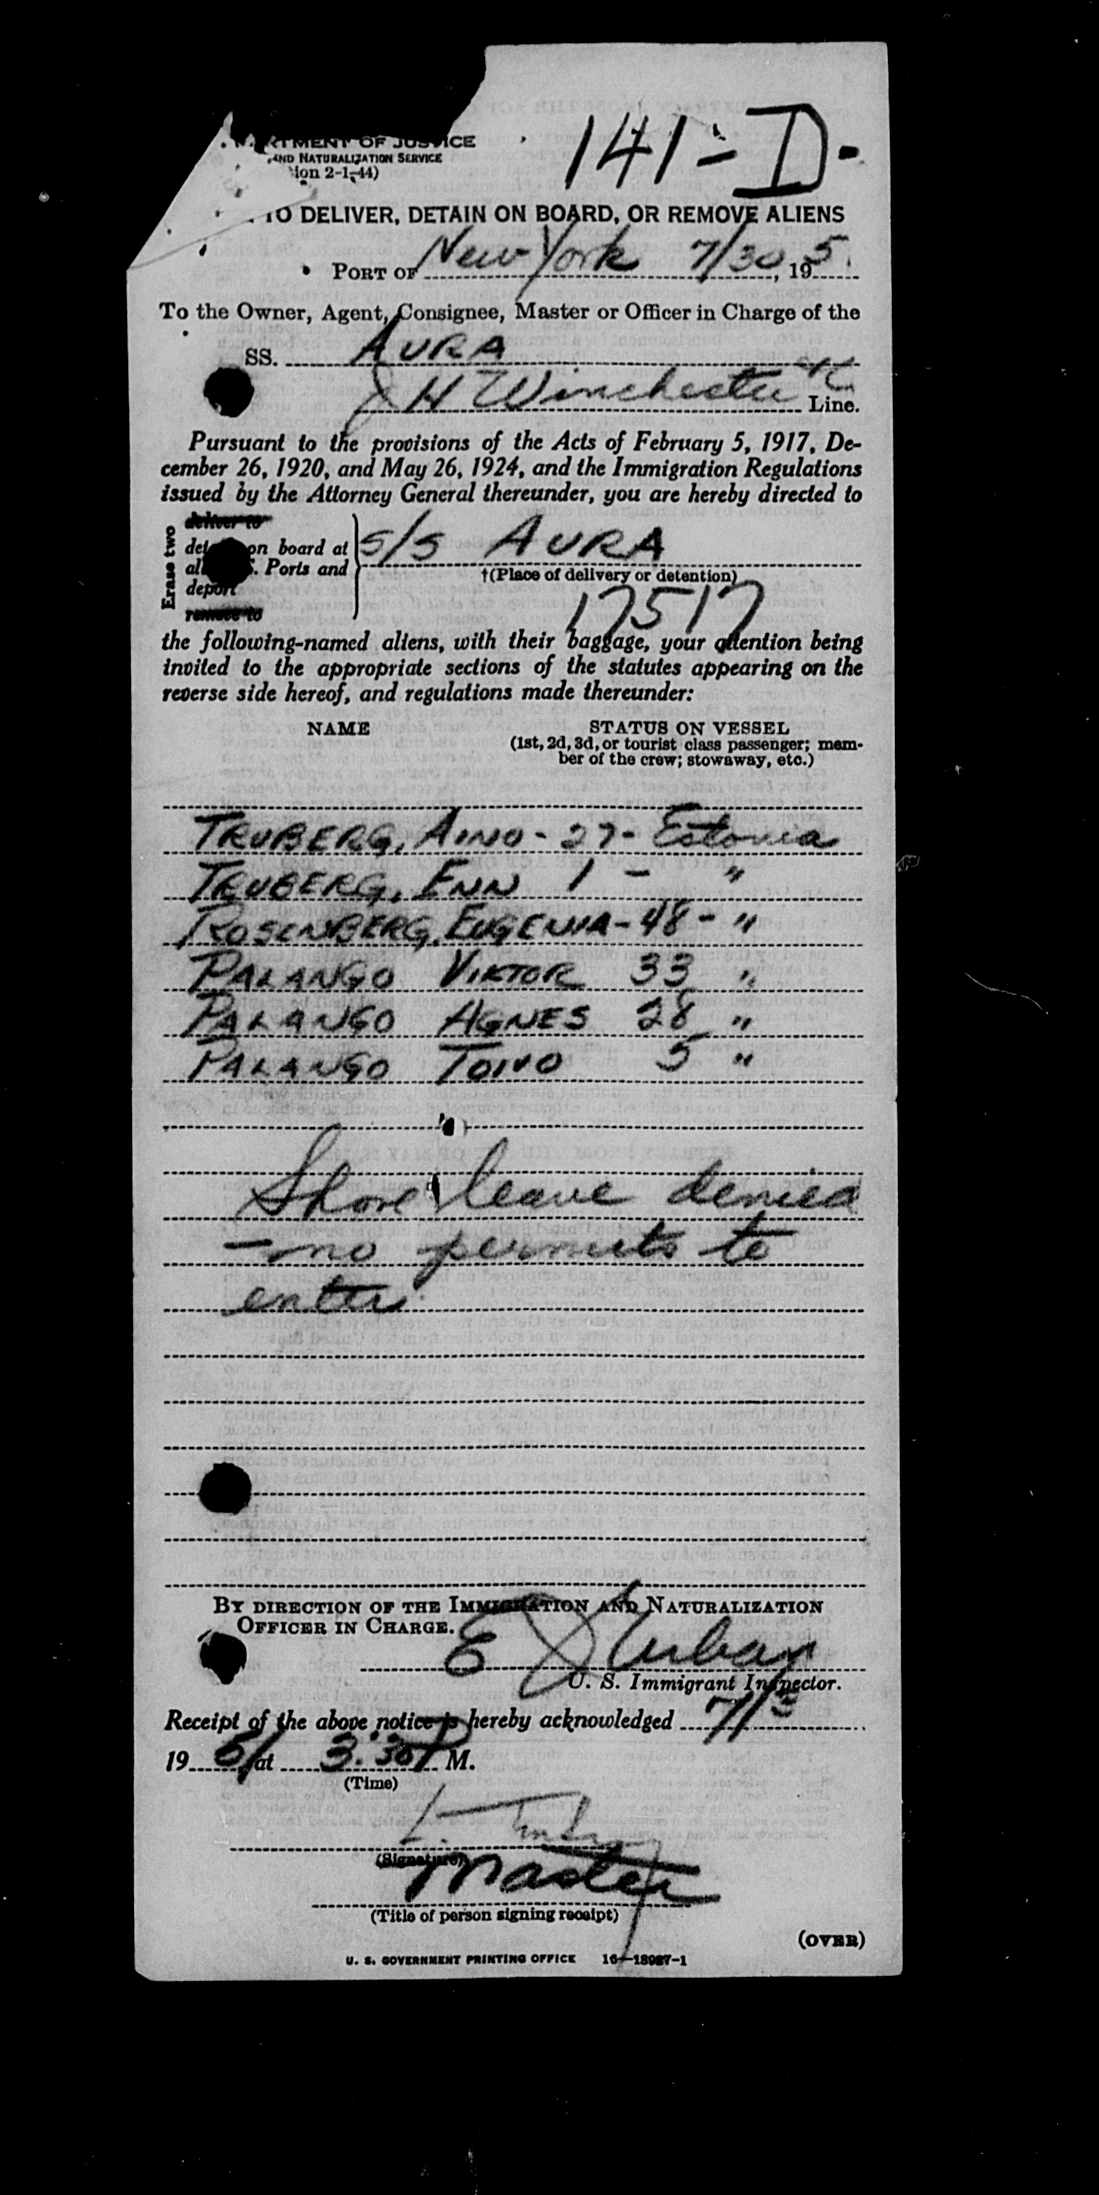 141-D.
RTMENT OF JUSTICE
AND NATURALIZATION SERVICE
ion 2-1-44)
TO DELIVER, DETAIN ON BOARD, OR REMOVE ALIENS
PORT OF New York 7/30, 195.
To the Owner, Agent, Consignee, Master or Officer in Charge of the
SS. AURA
J H Winchester Line.
Pursuant to the provisions of the Acts of February 5, 1917, De-
cember 26, 1920, and May 26, 1924, and the Immigration Regulations
issued by the Attorney General thereunder, you are hereby directed to
Erase two
deliver to
on board at S/S AURA
Ports and
†(Place of delivery or detention)
deport
remove to
17517
the following-named aliens, with their baggage, your attention being
invited to the appropriate sections of the statutes appearing on the
reverse side hereof, and regulations made thereunder:
NAME STATUS ON VESSEL
(1st, 2d, 3d, or tourist class passenger; mem-
ber of the crew; stowaway, etc.)
TRUBERG, AINO - 27 - Estonia
TRUBERG, ENN 1 - "
ROSENBERG, EUGENIA - 48 - "
PALANGO VIKTOR 33 "
PALANGO AGNES 28 "
PALANGO TOIVO 5 "
Shore leave denied
- no permits to
enter.
BY DIRECTION OF THE IMMIGRATION AND NATURALIZATION
OFFICER IN CHARGE.
E J Urban
U. S. Immigrant Inspector.
Receipt of the above notice is hereby acknowledged 7/3
19 51 at 3:30 P M.
(Time)
(Signature)
Master
(Title of person signing receipt)
(OVER)
U. S. GOVERNMENT PRINTING OFFICE 16—18987-1